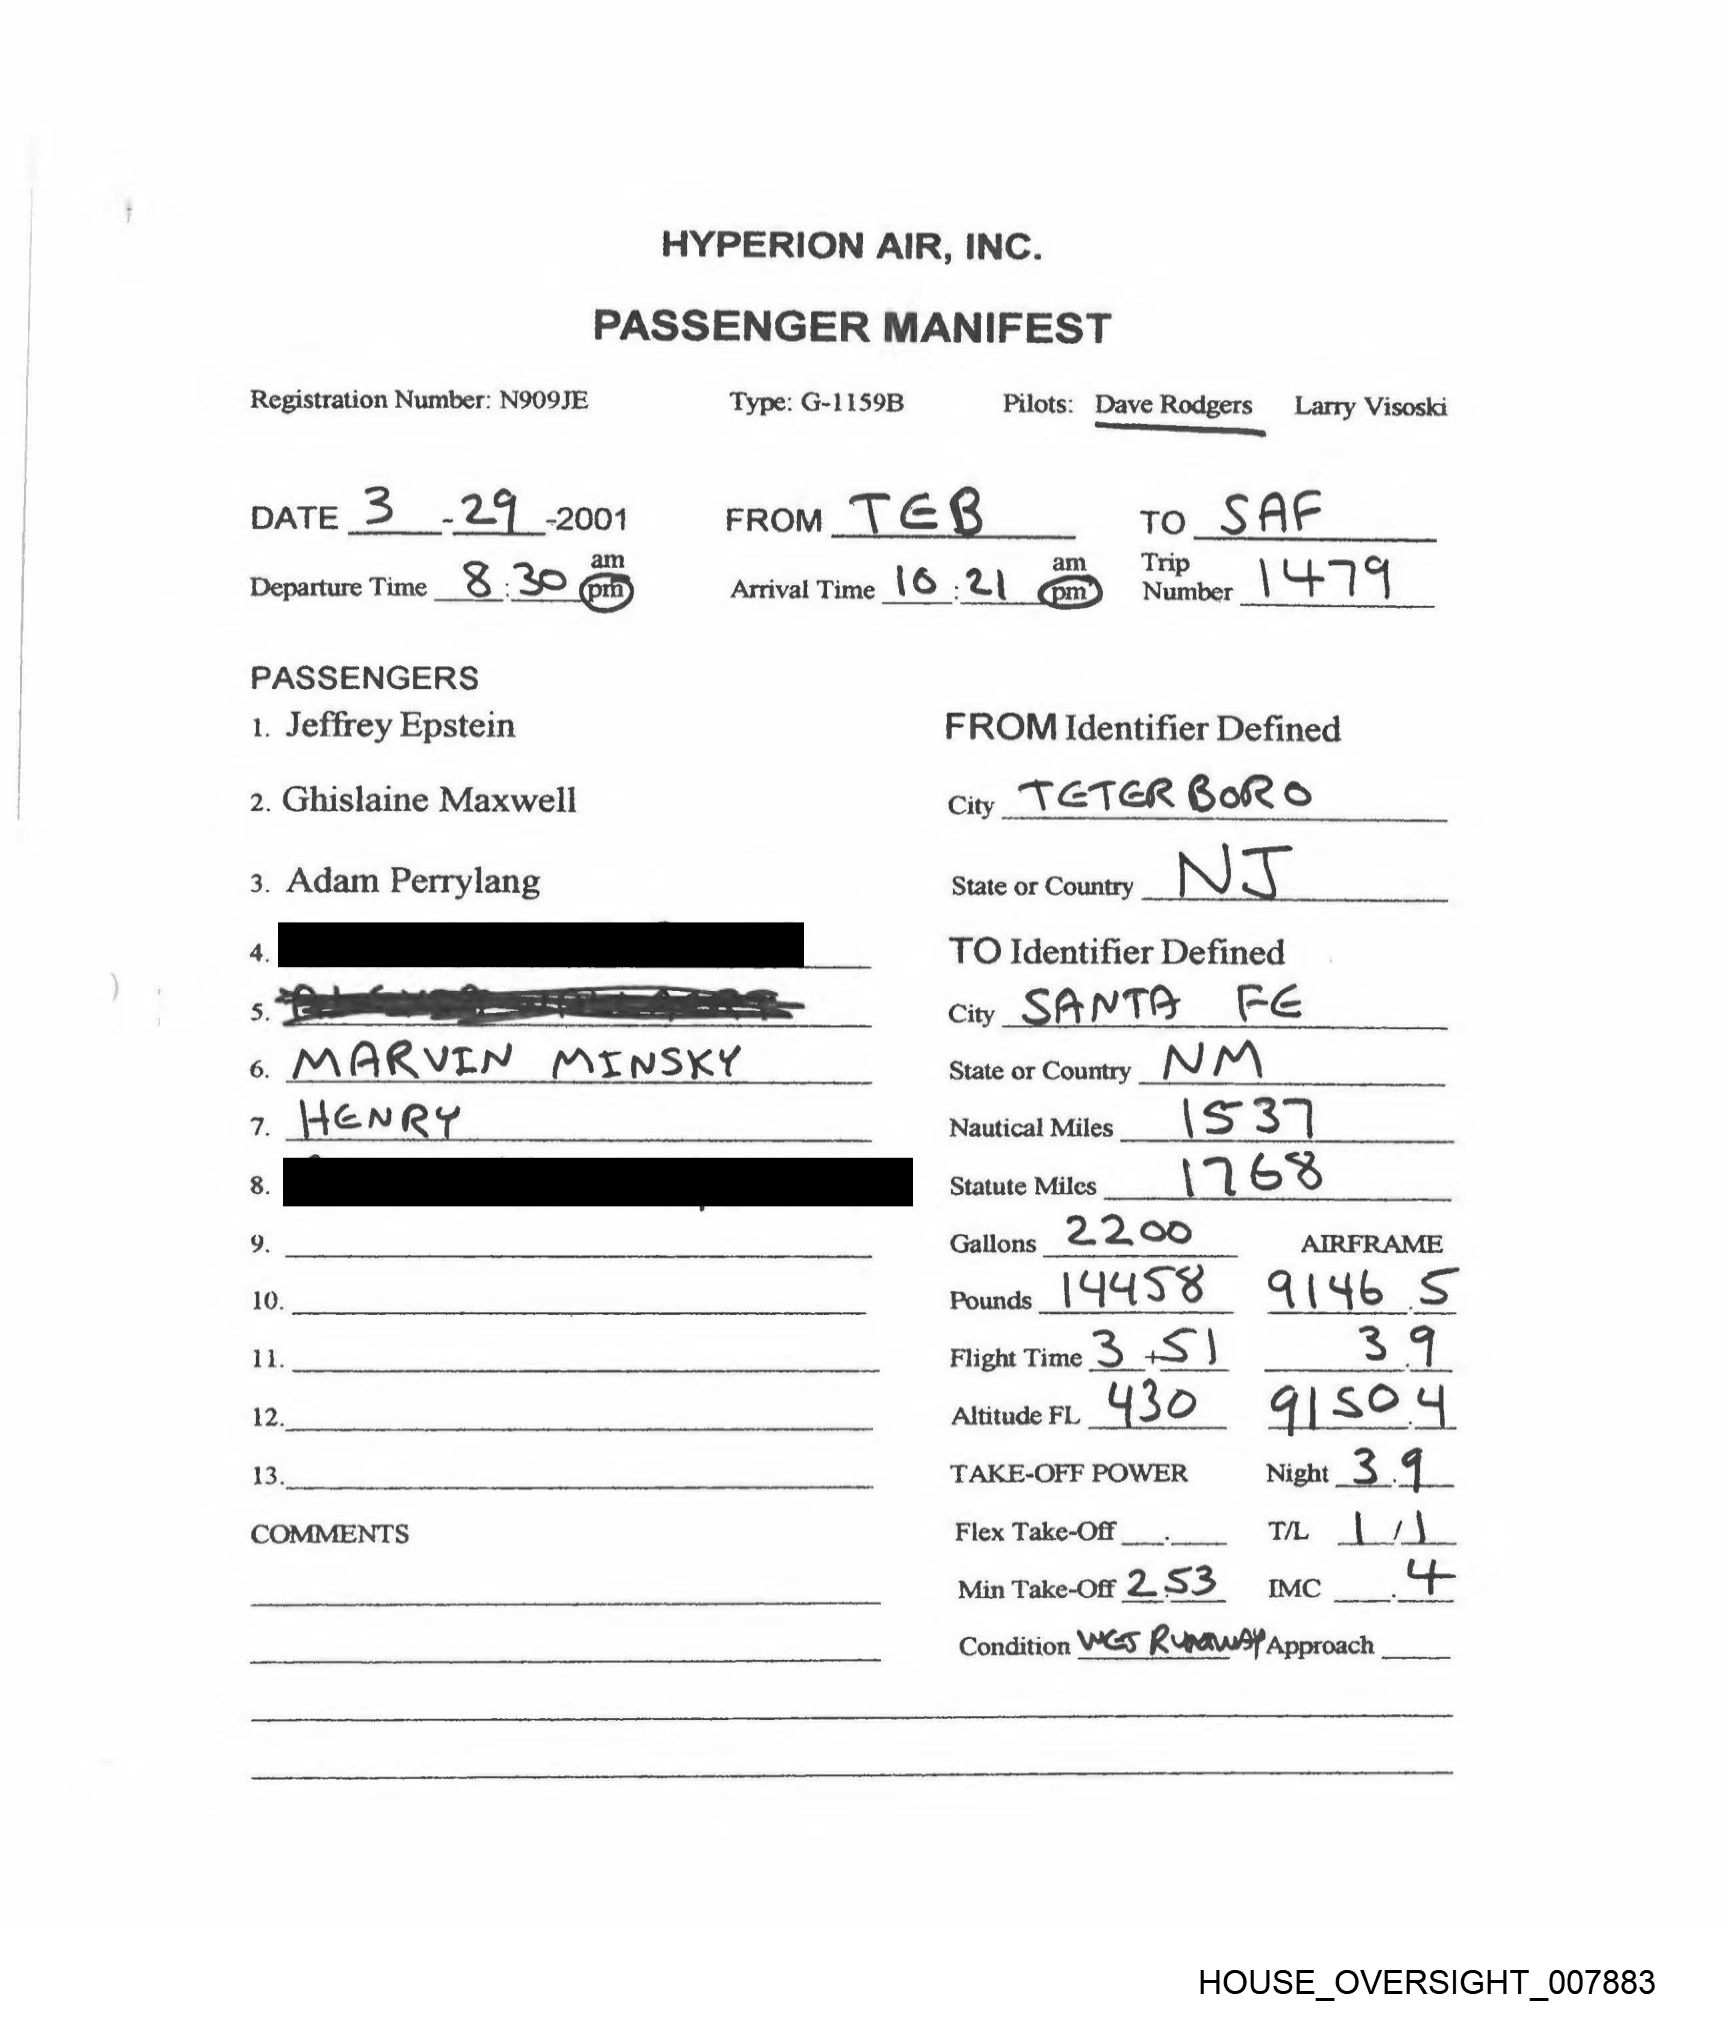 HYPERION AIR, INC.
PASSENGER MANIFEST
Registration Number: N909JE Type: G-1159B Pilots: Dave Rodgers Larry Visoski
DATE 3 - 29 -2001 FROM TEB TO SAF
Departure Time 8:30 am pm Arrival Time 10:21 am pm Trip Number 1479
PASSENGERS
1. Jeffrey Epstein
2. Ghislaine Maxwell
3. Adam Perrylang
4.
5.
6. MARVIN MINSKY
7. HENRY
8.
9.
10.
11.
12.
13.
COMMENTS
FROM Identifier Defined
City TETERBORO
State or Country NJ
TO Identifier Defined
City SANTA FE
State or Country NM
Nautical Miles 1537
Statute Miles 1768
Gallons 2200 AIRFRAME
Pounds 14458 9146.5
Flight Time 3+51 3.9
Altitude FL 430 9150.4
TAKE-OFF POWER Night 3.9
Flex Take-Off . T/L 1/1
Min Take-Off 2.53 IMC .4
Condition WET RUNWAY Approach
HOUSE_OVERSIGHT_007883